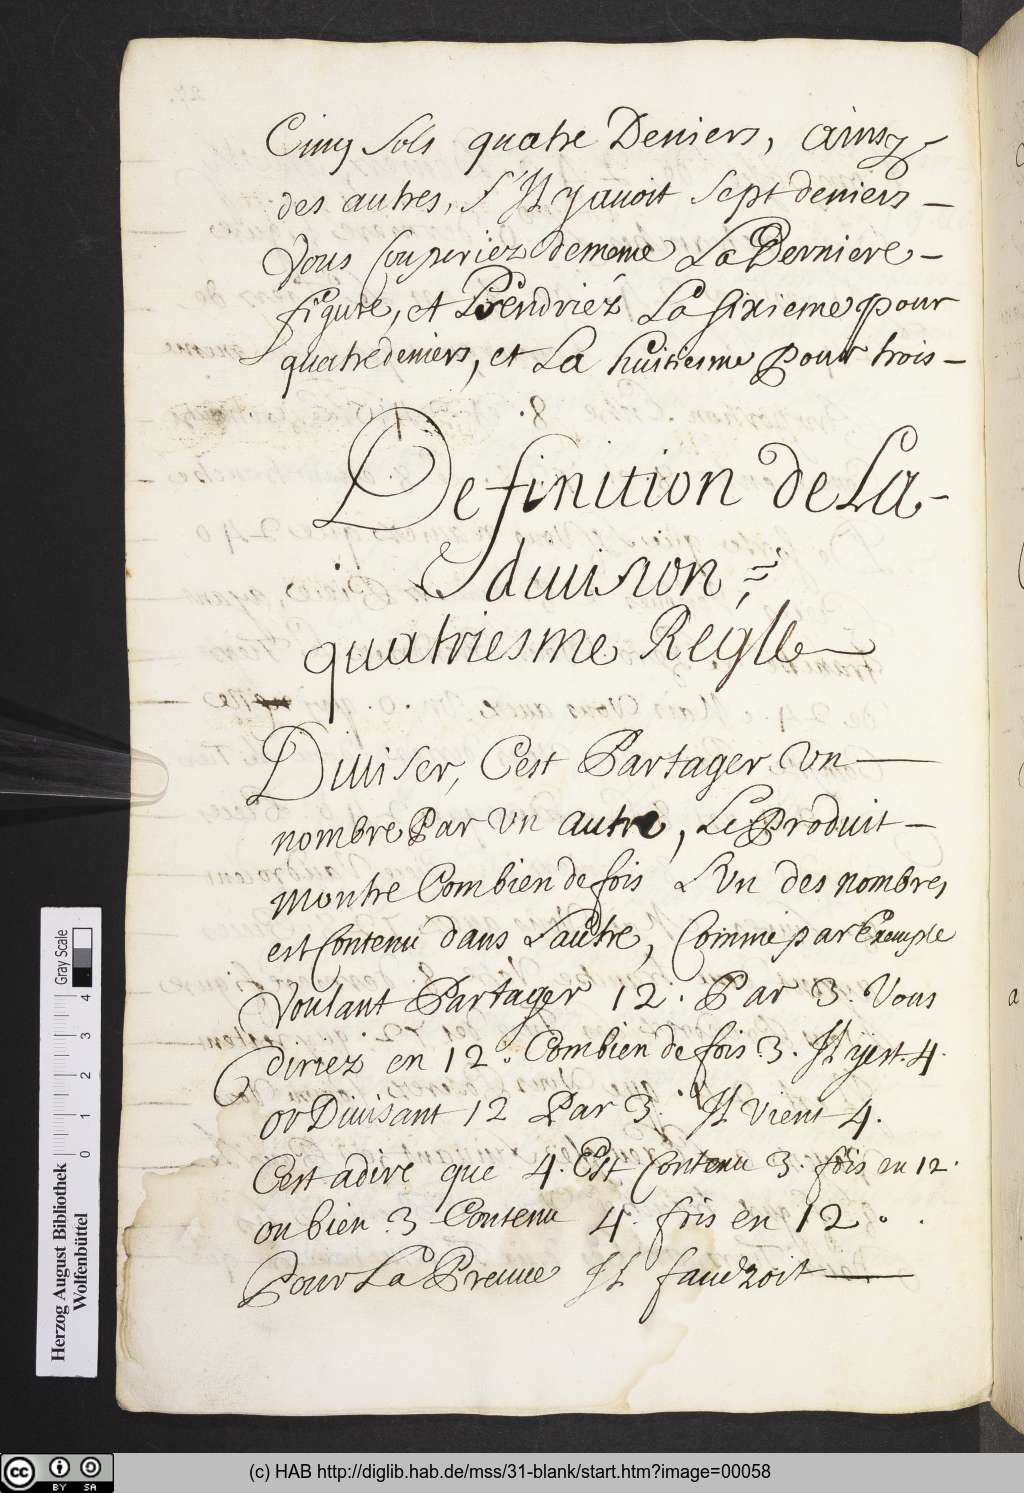 Cinq Sols quatre Deniers, ainsy
des autres, S'Il y auoit Sept deniers —
Vous Couperiez demême La Derniere —
figure, et Prendriéz La Sixieme pour
quatre deniers, et La huitiesme Pour trois —
Definition de La -
diuision
quatriesme Reglle
Diuiser, C'est Partager Vn —
nombre Par Vn autre, Le Produit —
montre Combien de fois L'Vn des nombres
est Contenu dans L'autre, Comme par Exemple
Voulant Partager 12. Par 3. Vous
diriez en 12. Combien de fois 3. Il y est. 4.
or Diuisant 12 Par 3. Il vient 4.
C'est adire que 4. Est Contenu 3. fois en 12.
ou bien 3 Contenu 4. fois en 12.
Pour La Preuue Il faudroit —
Herzog August Bibliothek
Wolfenbüttel
Gray Scale
0 1 2 3 4
cc BY SA
(c) HAB http://diglib.hab.de/mss/31-blank/start.htm?image=00058